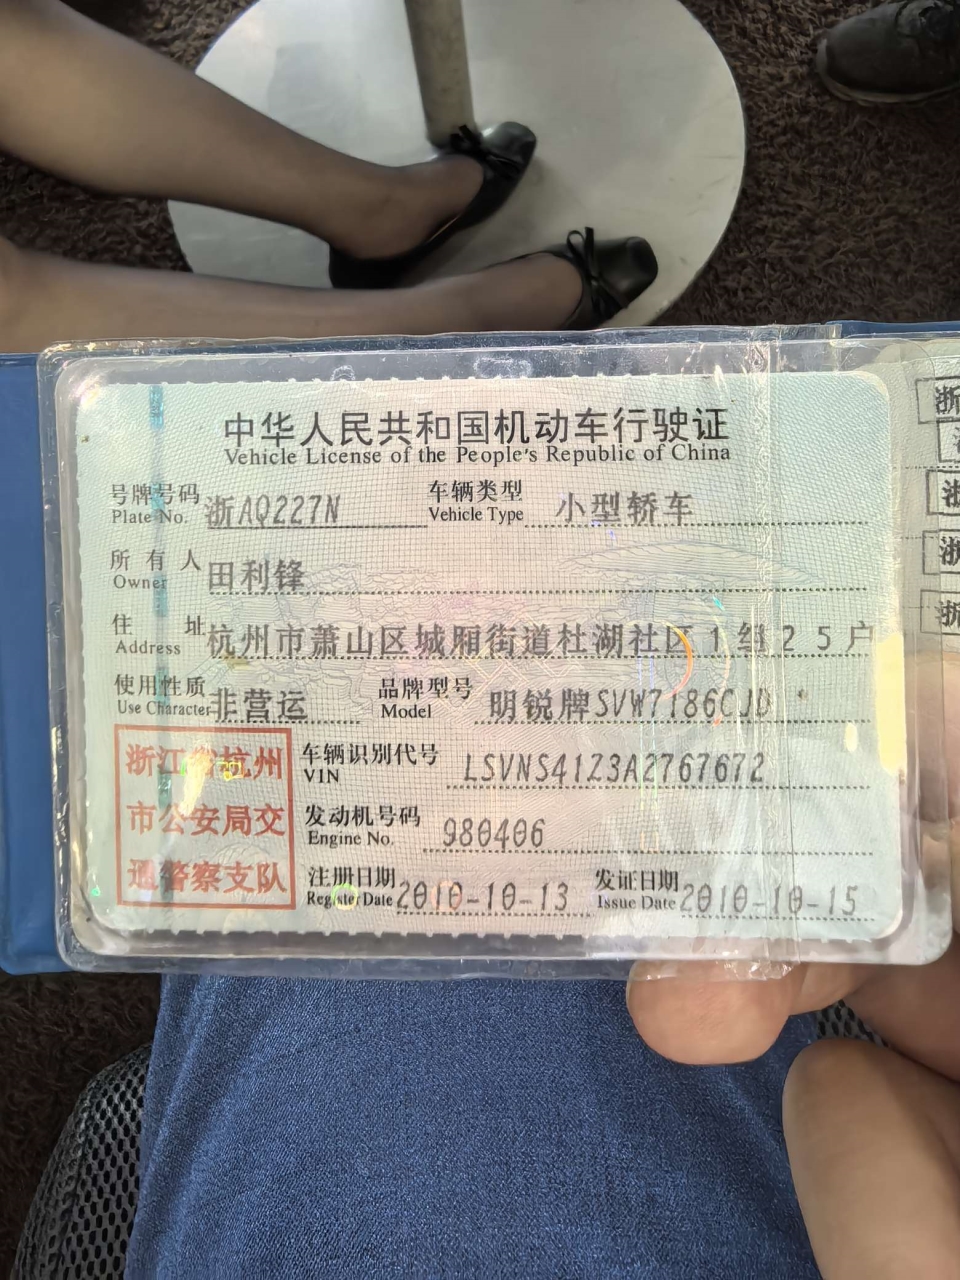 中华人民共和国机动车行驶证
Vehicle License of the People's Republic of China
号牌号码 浙AQ227N 车辆类型 小型轿车
Plate No. Vehicle Type
所有人 田利锋
Owner
住址 杭州市萧山区城厢街道杜湖社区1组25户
Address
使用性质 非营运 品牌型号 明锐牌SVW7186CJD
Use Character Model
浙江省杭州
市公安局交
通警察支队
车辆识别代号 LSVNS41Z3A2767672
VIN
发动机号码 980406
Engine No.
注册日期 2010-10-13 发证日期 2010-10-15
Register Date Issue Date
浙
浙
浙
浙